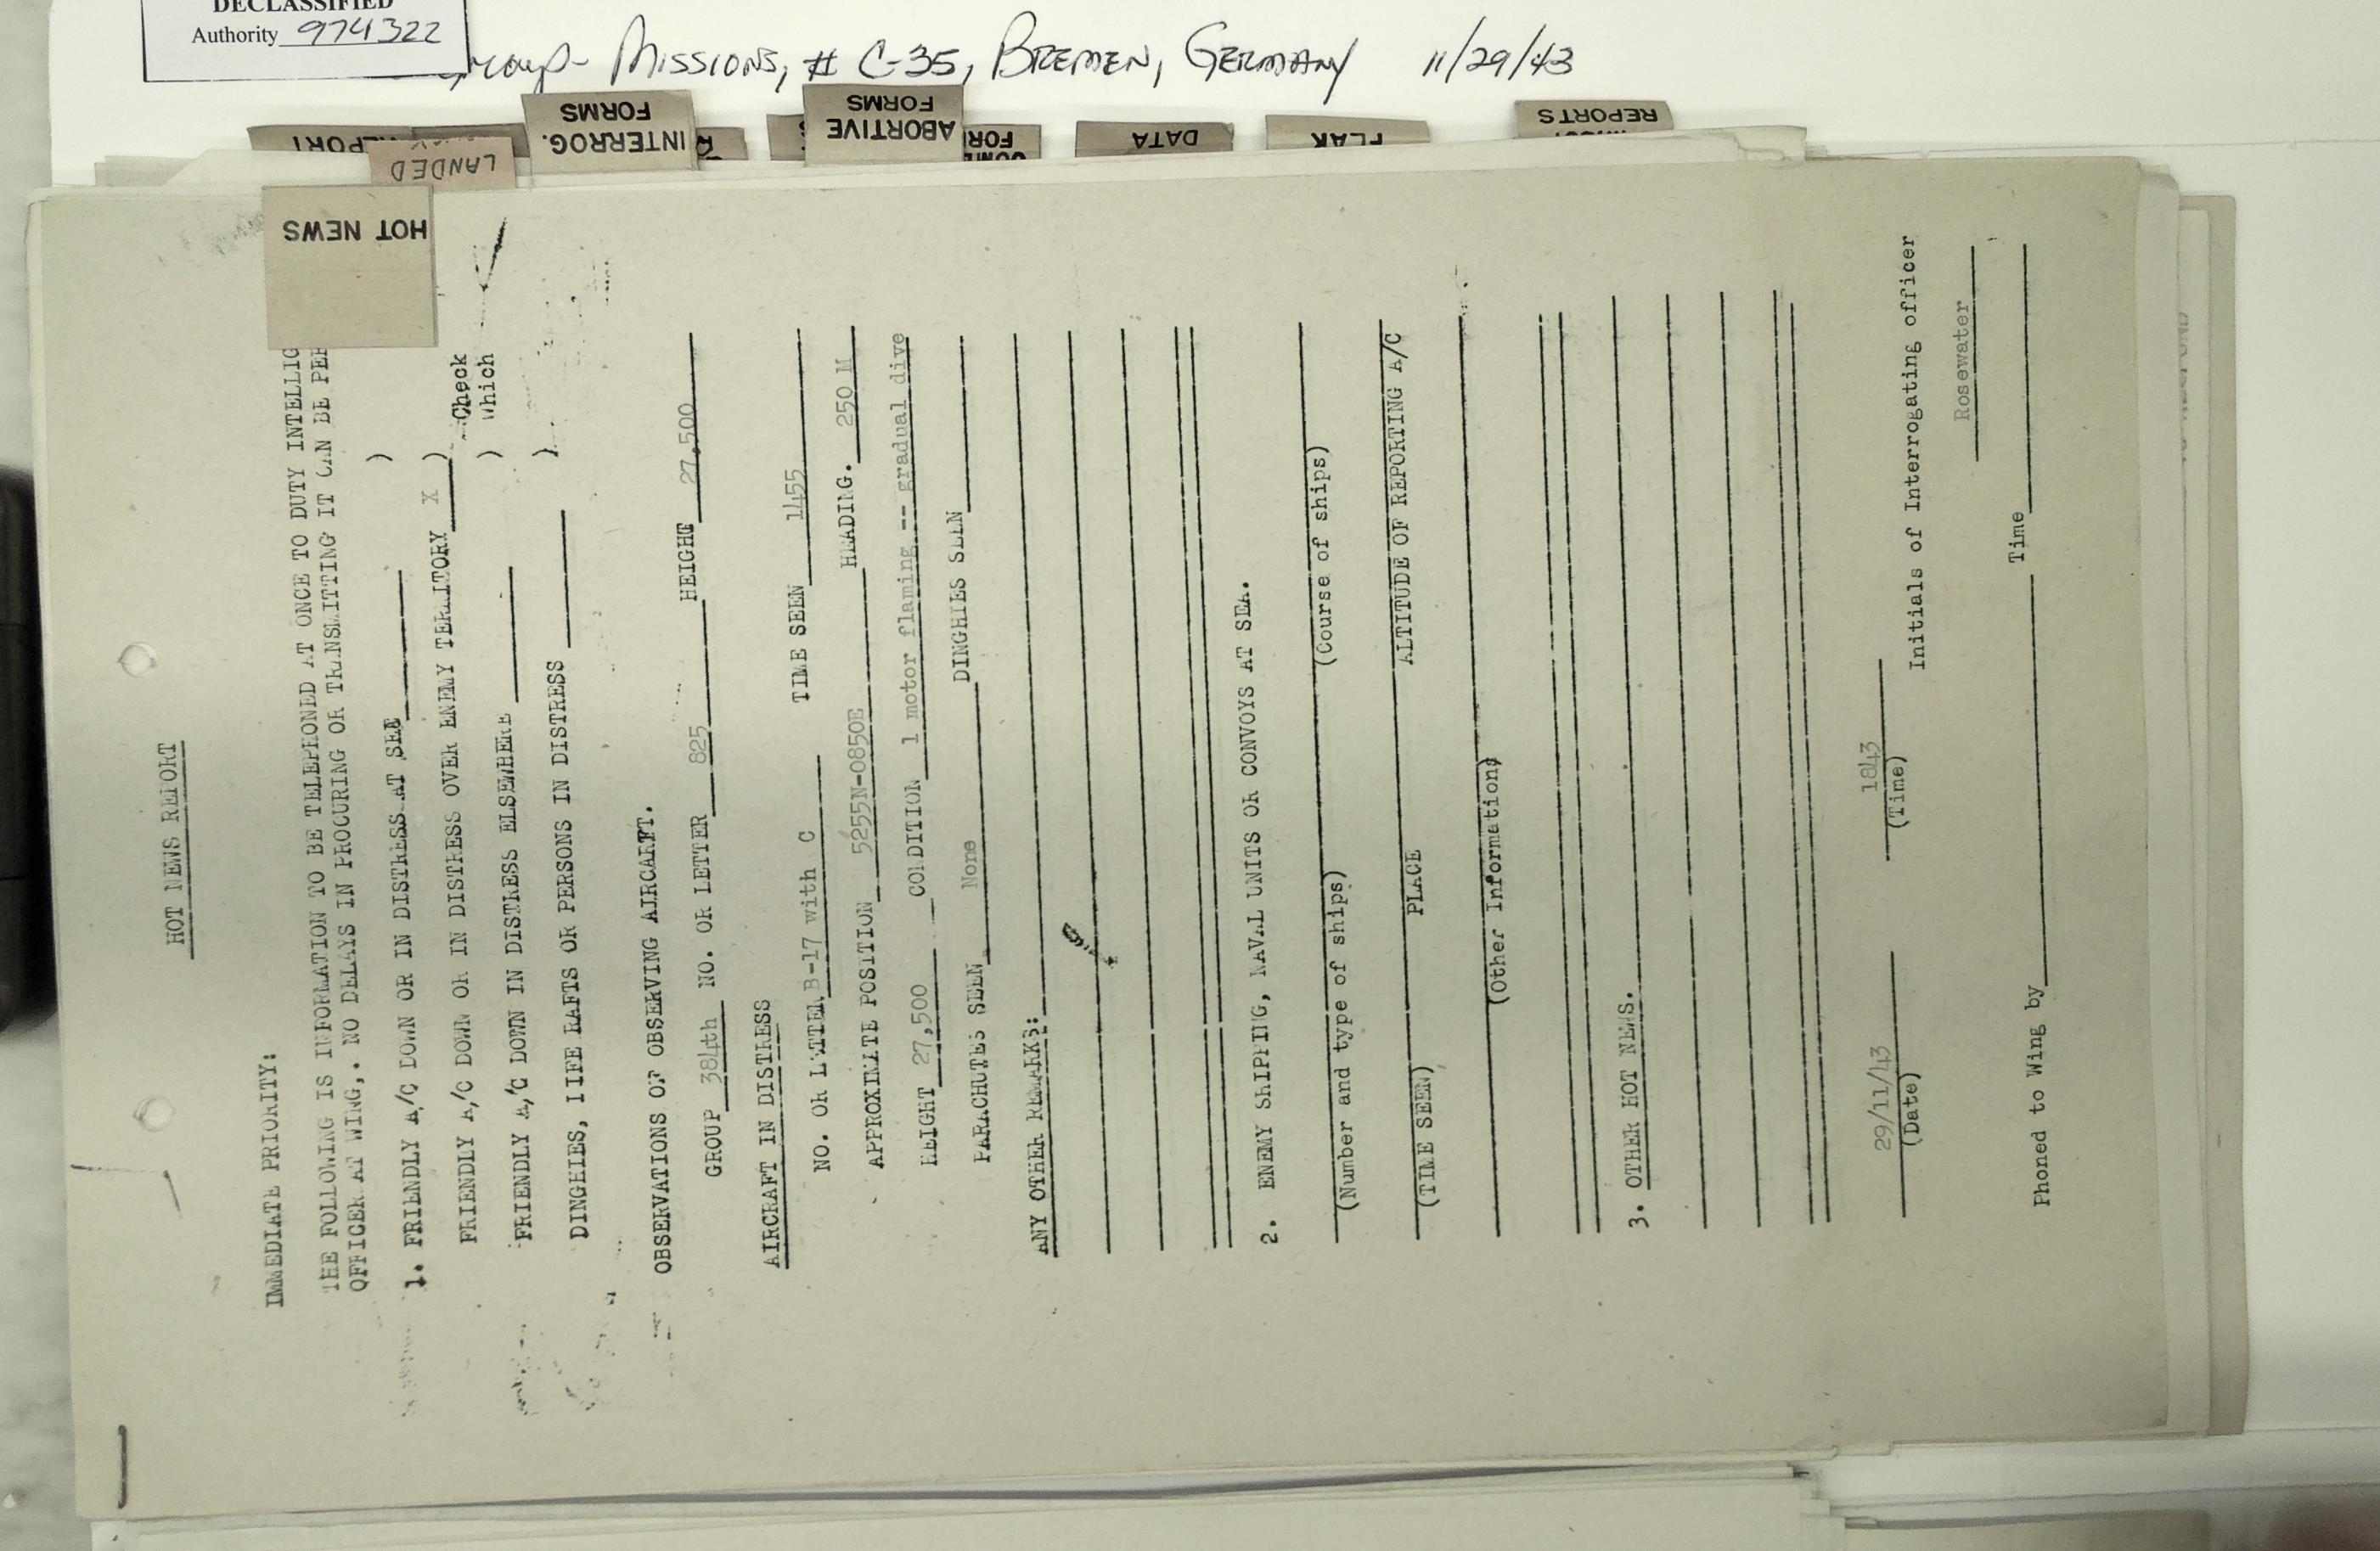 DECLASSIFIED
Authority 974322
Group- Missions, # C-35, Bremen, Germany 11/29/43
REPORT
LANDED
INTERROG.
FORMS
ABORTIVE
FORMS
DATA
FLAK
REPORTS
HOT NEWS
HOT NEWS REPORT
IMMEDIATE PRIORITY:
THE FOLLOWING IS INFORMATION TO BE TELEPHONED AT ONCE TO DUTY INTELLIG
OFFICER AT WING,. NO DELAYS IN PROCURING OR TRANSMITTING IT CAN BE PER
1. FRIENDLY A/C DOWN OR IN DISTRESS AT SEA ______ )
FRIENDLY A/C DOWN OR IN DISTRESS OVER ENEMY TERRITORY X ) Check
FRIENDLY A/C DOWN IN DISTRESS ELSEWHERE ______ ) Which
DINGHIES, LIFE RAFTS OR PERSONS IN DISTRESS ______ )
OBSERVATIONS OF OBSERVING AIRCARFT.
GROUP 384th NO. OR LETTER 825 HEIGHT 27,500
AIRCRAFT IN DISTRESS
NO. OR LETTER B-17 with C TIME SEEN 1455
APPROXIMATE POSITION 5255N-0850E HEADING. 250 M
HEIGHT 27,500 CONDITION 1 motor flaming -- gradual dive
PARACHUTES SEEN None DINGHIES SEEN
ANY OTHER REMARKS:
2. ENEMY SHIPPING, NAVAL UNITS OR CONVOYS AT SEA.
(Number and type of ships) (Course of ships)
(TIME SEEN) PLACE ALTITUDE OF REPORTING A/C
(Other Information)
3. OTHER HOT NEWS.
29/11/43 1843
(Date) (Time) Initials of Interrogating officer
Rosewater
Phoned to Wing by Time